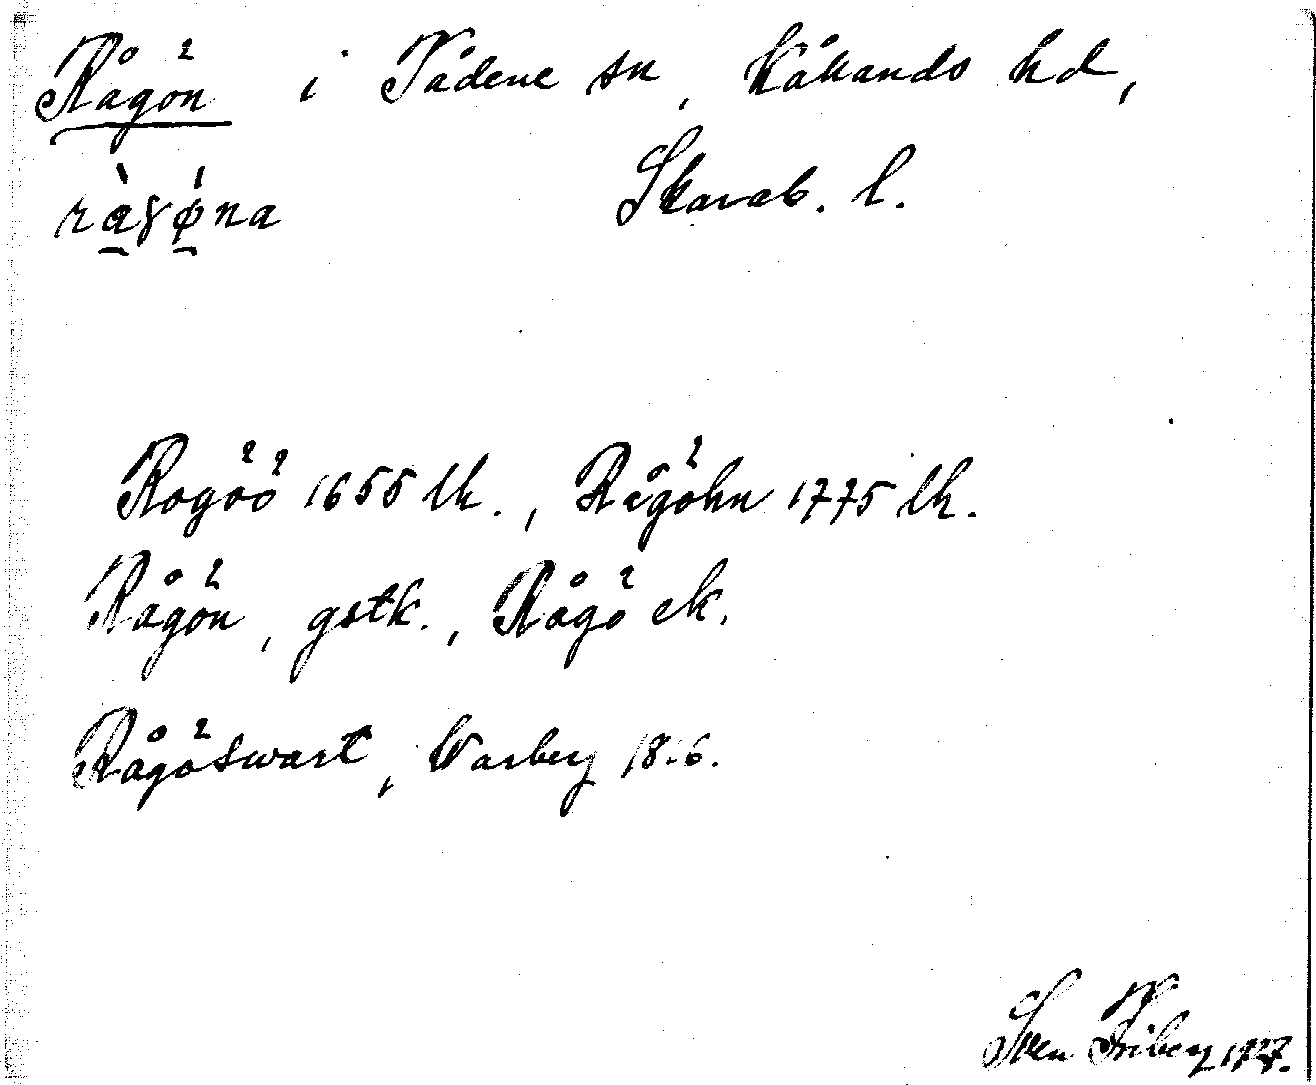 Rågön i Tådene sn, Kållands hd,
ràgǿna Skarab. l.
Rogöö 1655 lk., Rågöhn 1775 lk.
Rågön, gstk., Rågö ek.
Rågöswart, Warberg
Sven Friberg